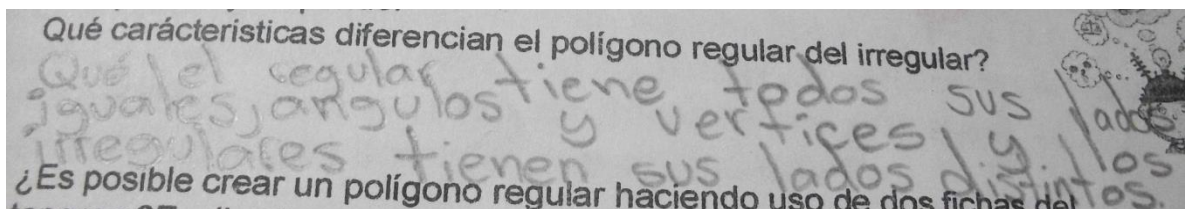 Qué carácteristicas diferencian el polígono regular del irregular?
Que el regular tiene todos sus lados
iguales, angulos y vertices, y los
irregulares tienen sus lados distintos.
¿Es posible crear un polígono regular haciendo uso de dos fichas del